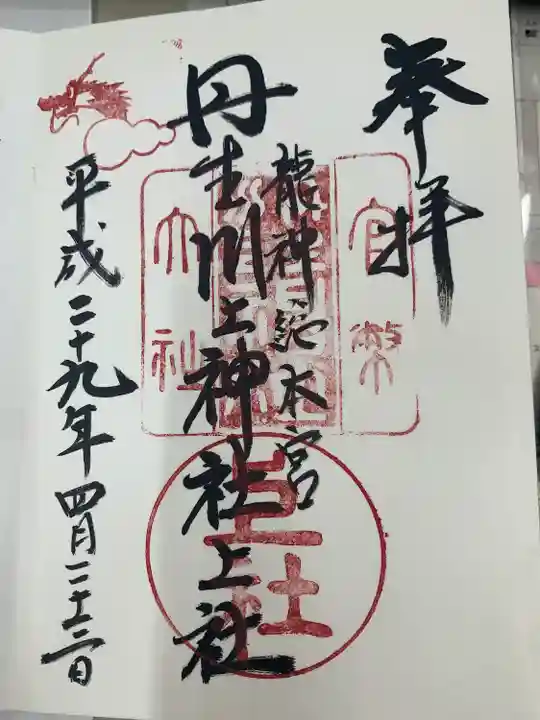 奉拝
官幣
龍神総本宮
丹生川上神社上社
大社
上社
平成二十九年四月二十三日